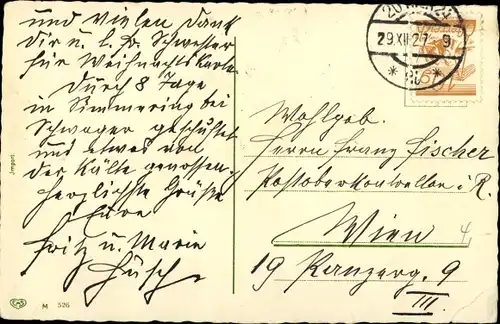 und vielen Dank
Dir u. l. Schwester
für Weihnachtskarte.
Durch 8 Tage
in Simmering bei
Schwager
und etwas von
der Kälte genossen.
Herzlichste Grüße
Eure
Fritz u. Marie
Import
M 526
29.XII.27. 9
Wohlgeb.
Herrn Franz Fischer
Postoberkontrollor i. R.
Wien
19 Kanzerg. 9
III.